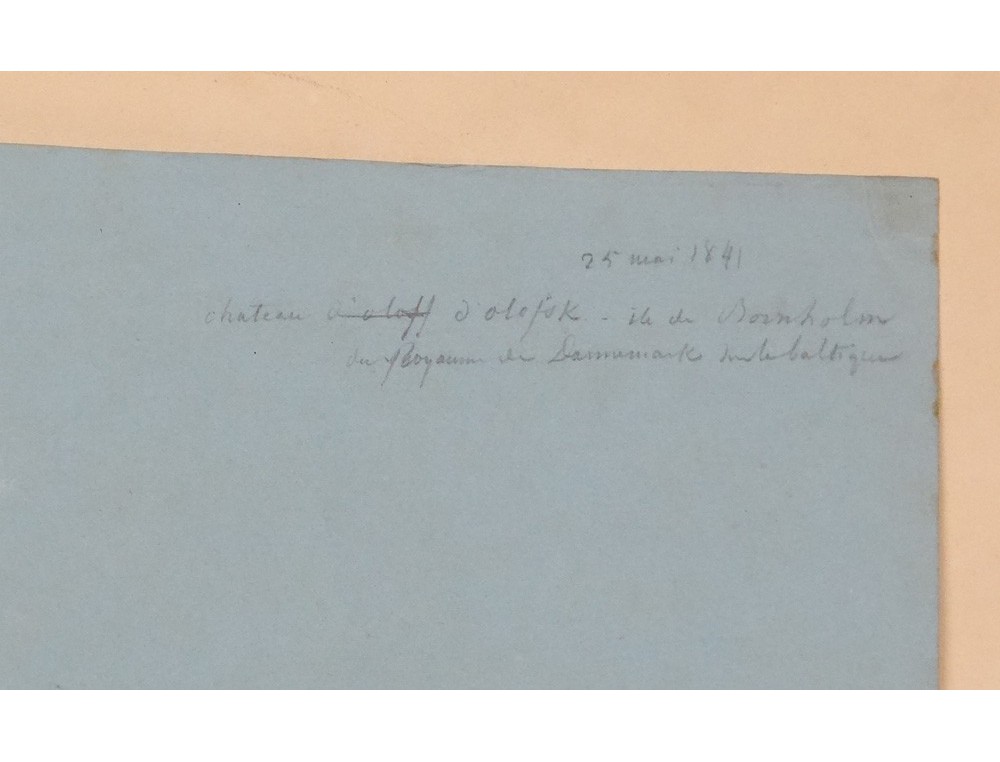 25 mai 1841
chateau d'oloff d'olofsk - ile de Bornholm
du Royaume de Dannemark sur la baltique